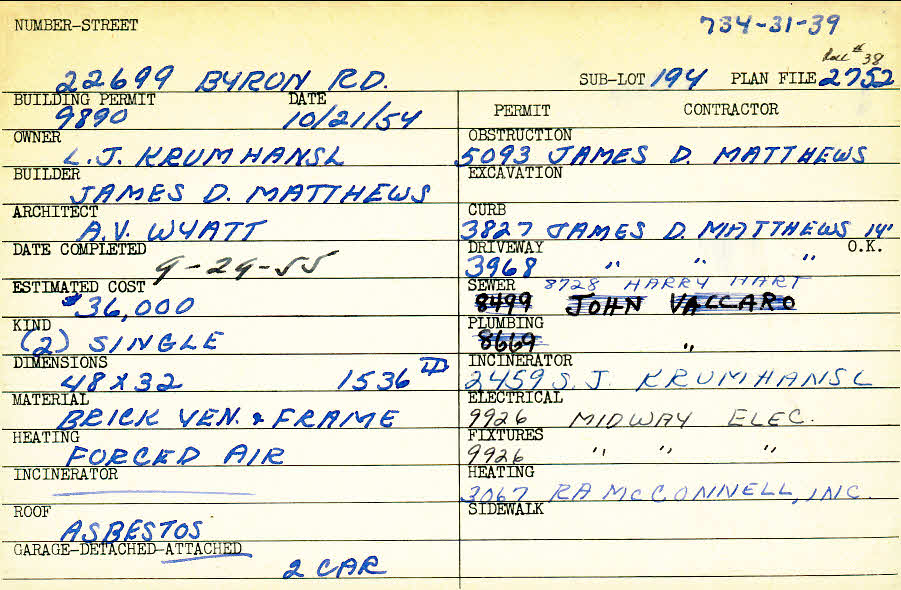 NUMBER-STREET 734-31-39
Roll # 38
22699 BYRON RD. SUB-LOT 194 PLAN FILE 2752
BUILDING PERMIT DATE
9890 10/21/54
OWNER
L.J. KRUMHANSL
BUILDER
JAMES D. MATTHEWS
ARCHITECT
A.V. WYATT
DATE COMPLETED
9-29-55
ESTIMATED COST
$36,000
KIND
(2) SINGLE
DIMENSIONS
48 X 32 1536
MATERIAL
BRICK VEN. & FRAME
HEATING
FORCED AIR
INCINERATOR
ROOF
ASBESTOS
GARAGE-DETACHED-ATTACHED
2 CAR
PERMIT CONTRACTOR
OBSTRUCTION
5093 JAMES D. MATTHEWS
EXCAVATION
CURB
3827 JAMES D. MATTHEWS 14'
DRIVEWAY O.K.
3968 " " "
SEWER 8728 HARRY HART
8499 JOHN VACCARO
PLUMBING
8669 "
INCINERATOR
2459 S.J. KRUMHANSL
ELECTRICAL
9926 MIDWAY ELEC.
FIXTURES
9926 " " "
HEATING
3067 RA MCCONNELL, INC.
SIDEWALK